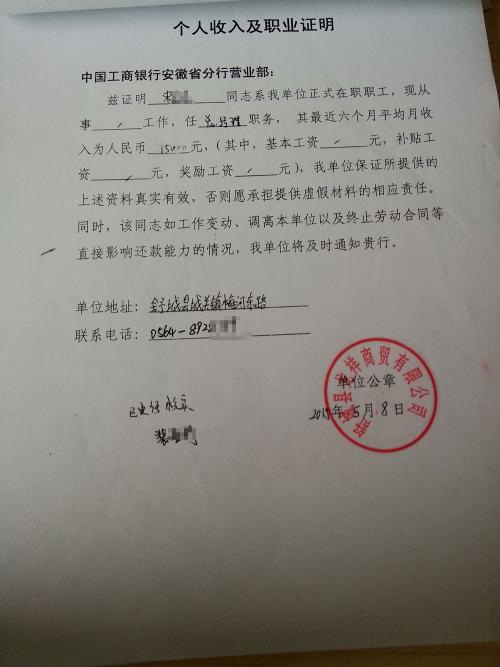 个人收入及职业证明
中国工商银行安徽省分行营业部:
兹证明 宋 同志系我单位正式在职职工, 现从
事 / 工作, 任 总经理 职务, 其最近六个月平均月收
入为人民币 15000 元, (其中, 基本工资 / 元, 补贴工
资 / 元, 奖励工资 / 元), 我单位保证所提供的
上述资料真实有效, 否则愿承担提供虚假材料的相应责任。
同时, 该同志如工作变动、调离本单位以及终止劳动合同等
直接影响还款能力的情况, 我单位将及时通知贵行。
单位地址: 舒城县城关镇梅河东路
联系电话: 0564-892
单位公章
2015年5月8日
已电话核实
祥商贸有限公司